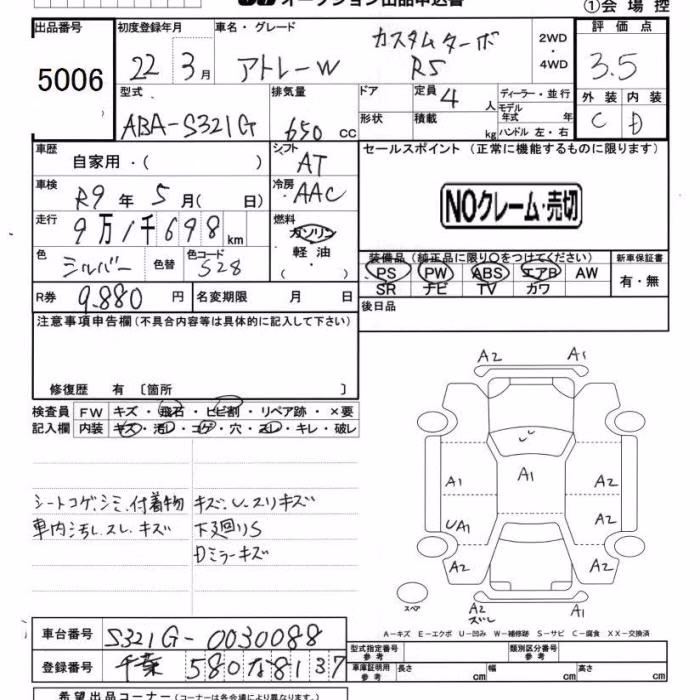 オークション出品申込書
①会場控
出品番号
5006
初度登録年月
22年3月
車名・グレード
アトレーW
カスタムターボ
RS
2WD
・
4WD
評価点
3.5
型式
ABA-S321G
排気量
650cc
ドア
形状
定員
4人
積載
kg
ディーラー・並行
モデル
年式 年
ハンドル 左・右
外装 内装
C D
車歴
自家用・( )
シフト
AT
セールスポイント(正常に機能するものに限ります)
車検
R9年5月( 日)
冷房
AAC
NOクレーム・売切
走行
9万1千698km
燃料
ガソリン
軽油
・( )
色
シルバー
色替
色コード
S28
装備品(純正品に限り○をつけてください)
PS PW ABS エアB AW
SR ナビ TV カワ
新車保証書
有・無
R券
9.880円
名変期限 月 日
後日品
注意事項申告欄(不具合内容等は具体的に記入して下さい)
修復歴 有〔箇所 〕
検査員
記入欄
FW キズ・飛石・ヒビ割・リペア跡・×要
内装 キズ・汚レ・コゲ・穴・スレ・キレ・破レ
シートコゲ.シミ.付着物
車内汚し.スレ.キズ
キズ.U.スリキズ
下廻りS
Dミラーキズ
A2 A1
A1 A1 A2
UA1 A2
A2 A2
A2 A1
ズレ
スペア
A-キズ E-エクボ U-凹み W-補修跡 S-サビ C-腐食 XX-交換済
車台番号
S321G-0030088
登録番号
千葉580な8137
型式指定番号
参考
類別区分番号
参考
車庫証明用
参考
長さ cm
幅 cm
高さ cm
希望出品コーナー(コーナーは各会場により異なります。)